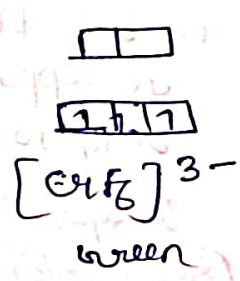 1 1 1
[CrF6]3-
green